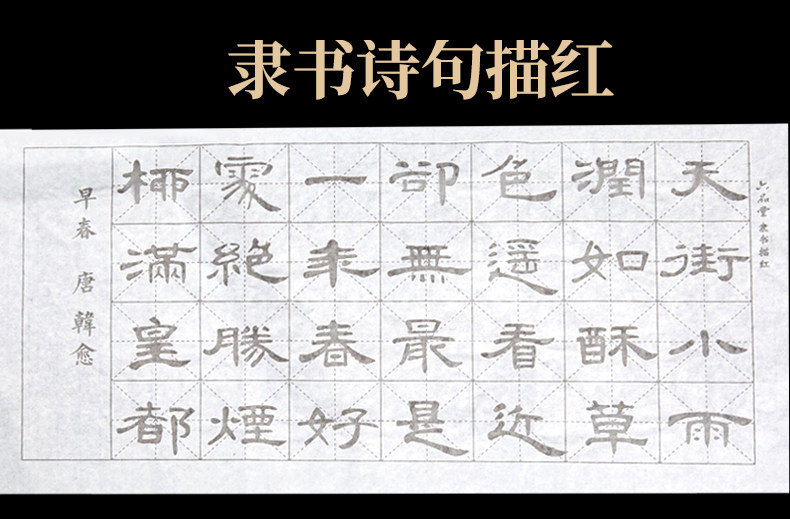 隶书诗句描红
六品堂 隶书描红
天街小雨
潤如酥草
色遥看近
卻無最是
一年春好
處絕勝煙
柳滿皇都
早春 唐 韓愈